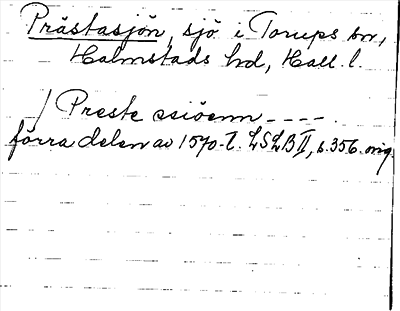 Prästasjön, sjö i Torups sn,
Halmstads hd, Hall. l.
/ Preste ssiöenn ----
förra delen av 1570-t. LSLB II, s. 356. orig.